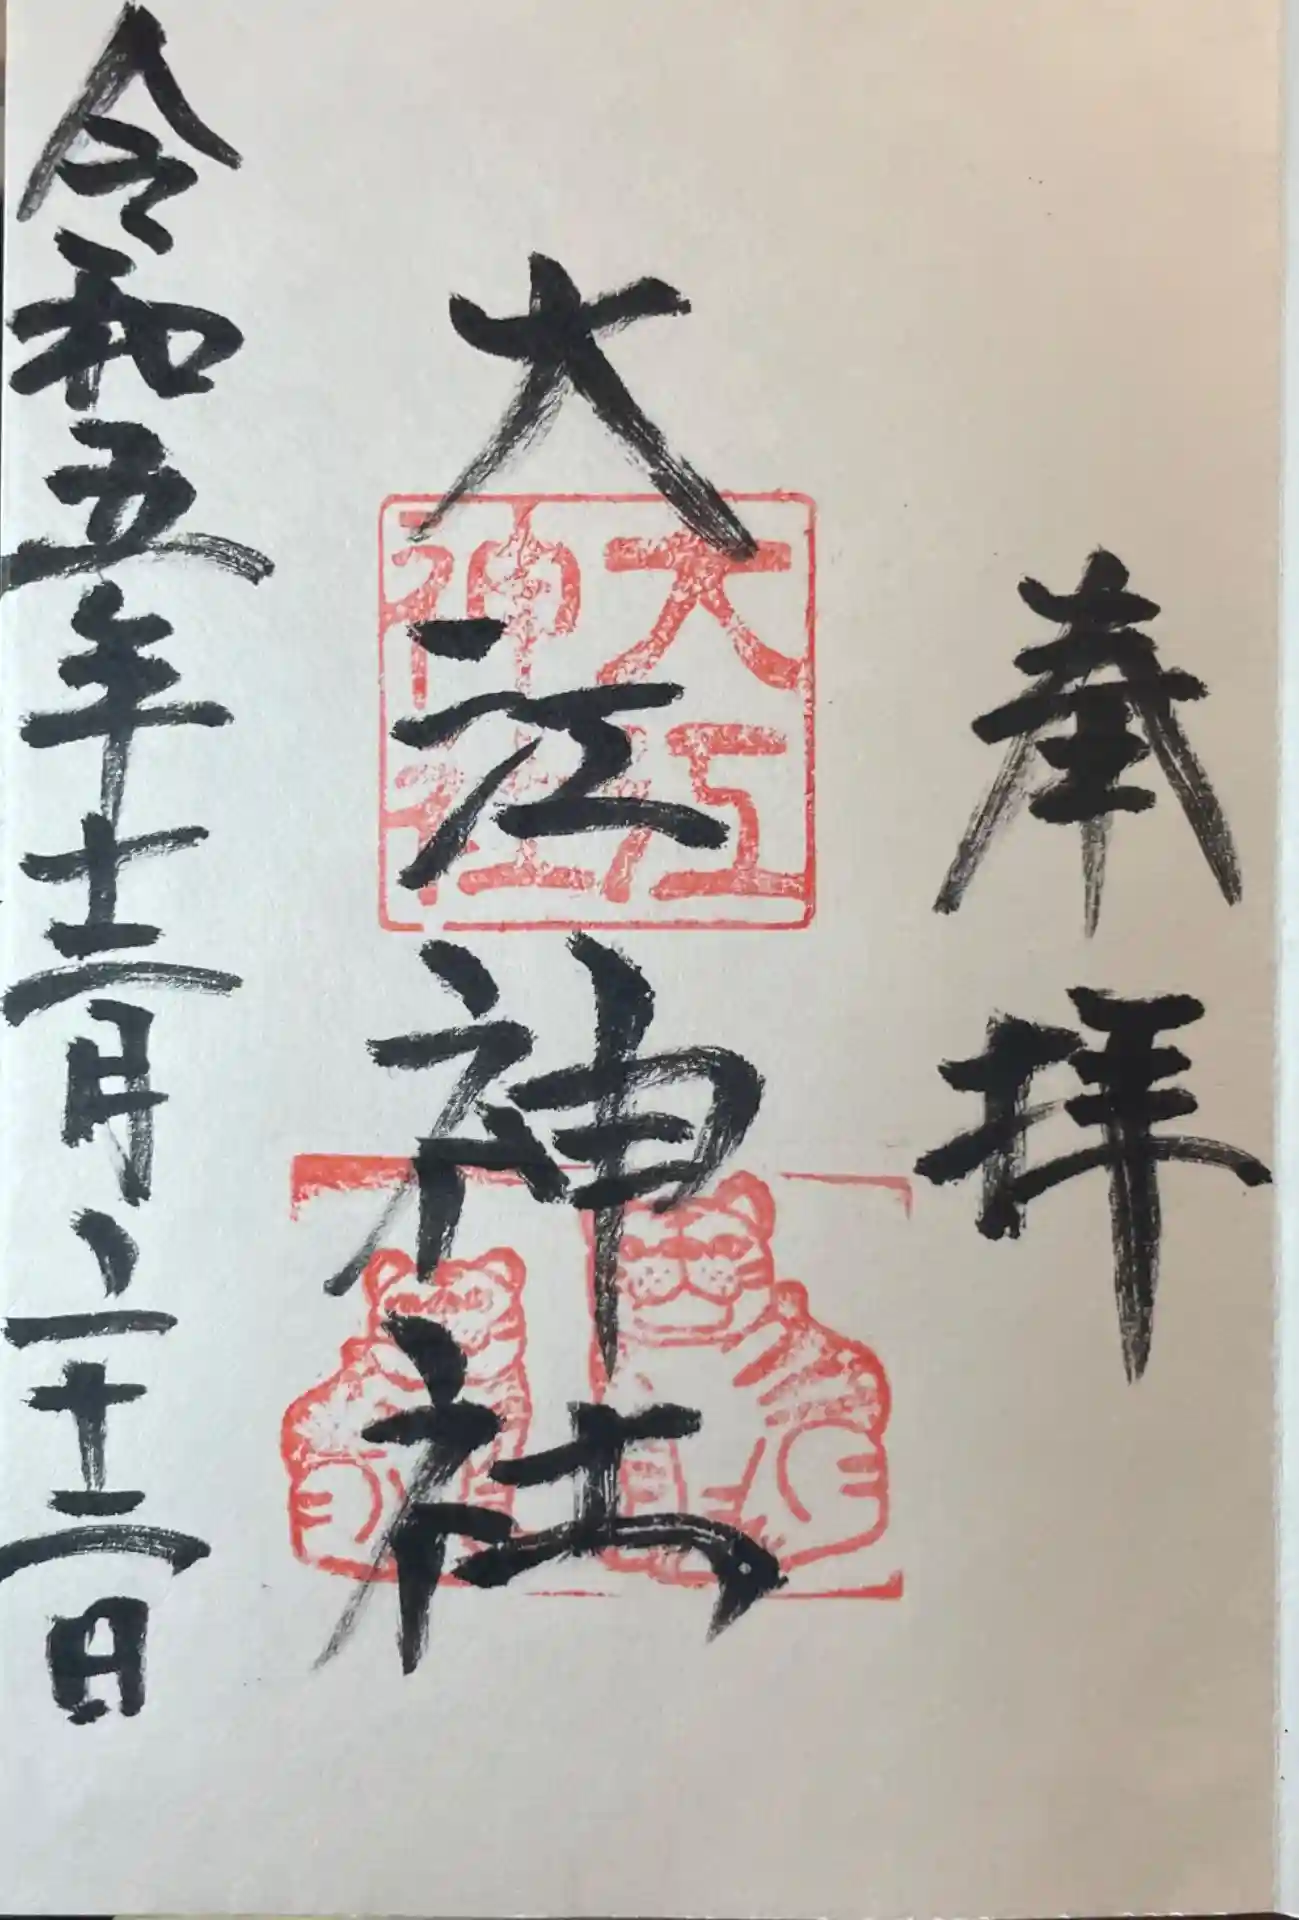 奉拝
大江神社
大江
神社
令和五年十二月二十二日